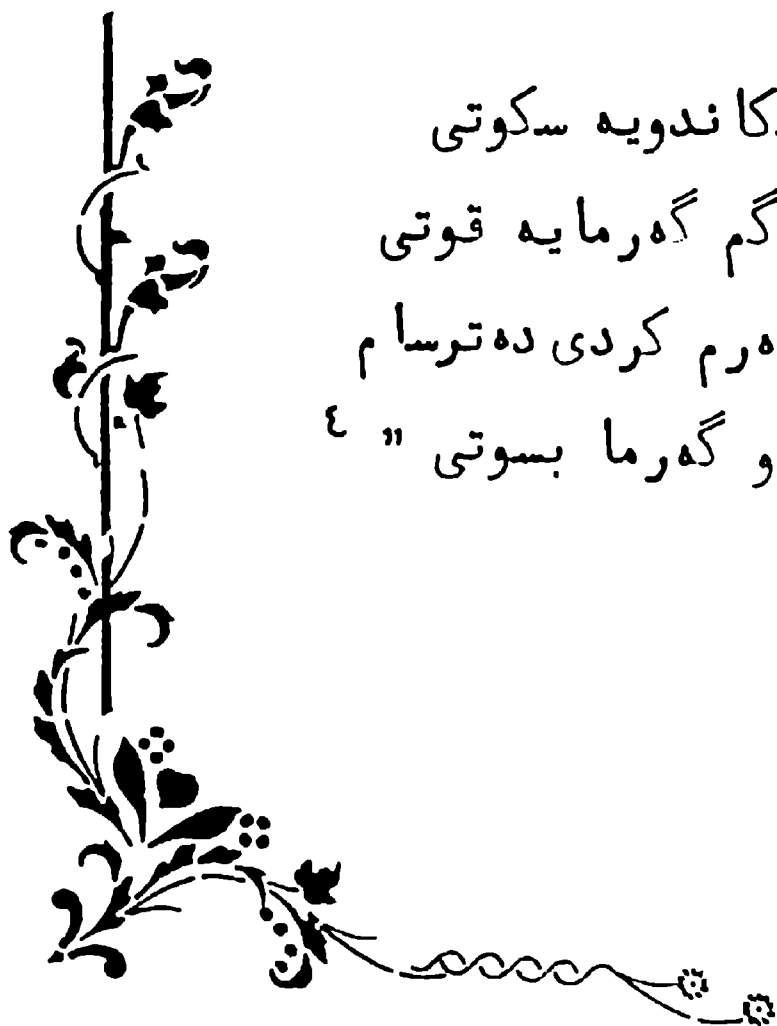 كا ندويه سكوتى
گم گەرمايه قوتى
ەرم كردى دەترسام
و گەرما بسوتى " ٤